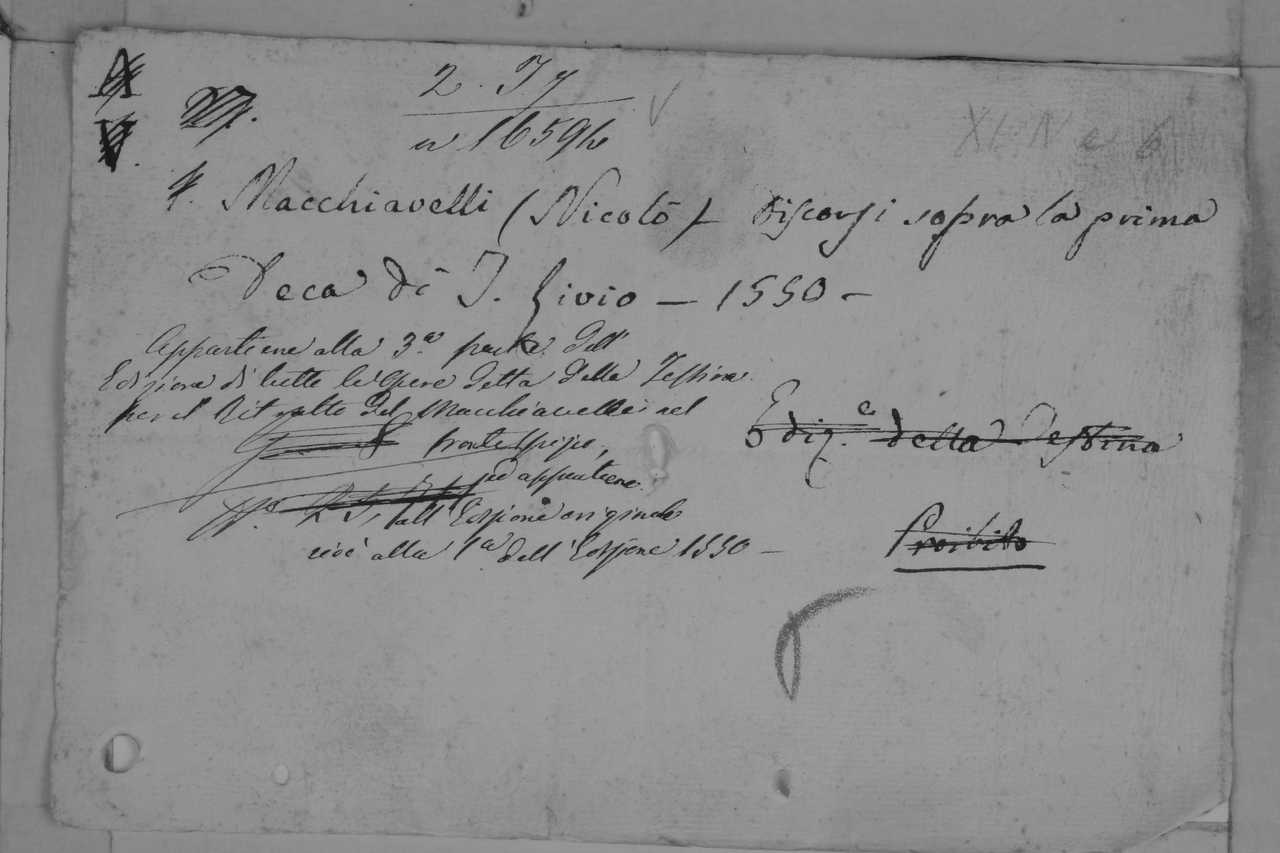 A
V.
27.
2. Iy
n 16594
4. Macchiavelli (Nicolò) Discorsi sopra la prima
Deca di T. Livio — 1550 —
Appartiene alla 3.a parte dell'
Edizione di tutte le Opere detta della Testina
per il Ritratto del Macchiavelli nel
frontespizio,
ed appartiene
all'Edizione originale
cioè alla 1.a dell'Edizione 1550 —
Ediz.e della Testina
Proibito